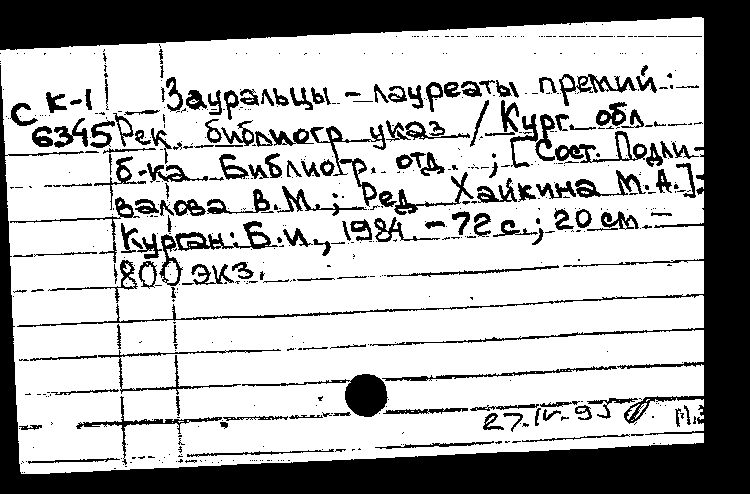 С К-1 Зауральцы – лауреаты премий:
6345 Рек. библиогр. указ / Кург. обл.
б-ка. Библиогр. отд. ; [Сост. Подли-
валова В.М.; Ред. Хайкина М.А.].–
Курган: Б.и., 1984. – 72 с.; 20 см. –
800 экз.
27.IV-95